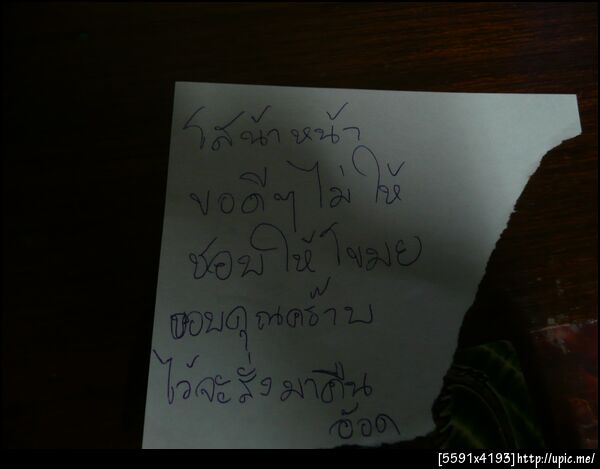 โส้น้าหน้า
ขอดีๆไม่ให้
ชอบให้โขมย
ขอบคุณคร๊าบ
ไว้จะสั่งมาคืน
อ๊อด
[5591x4193]http://upic.me/